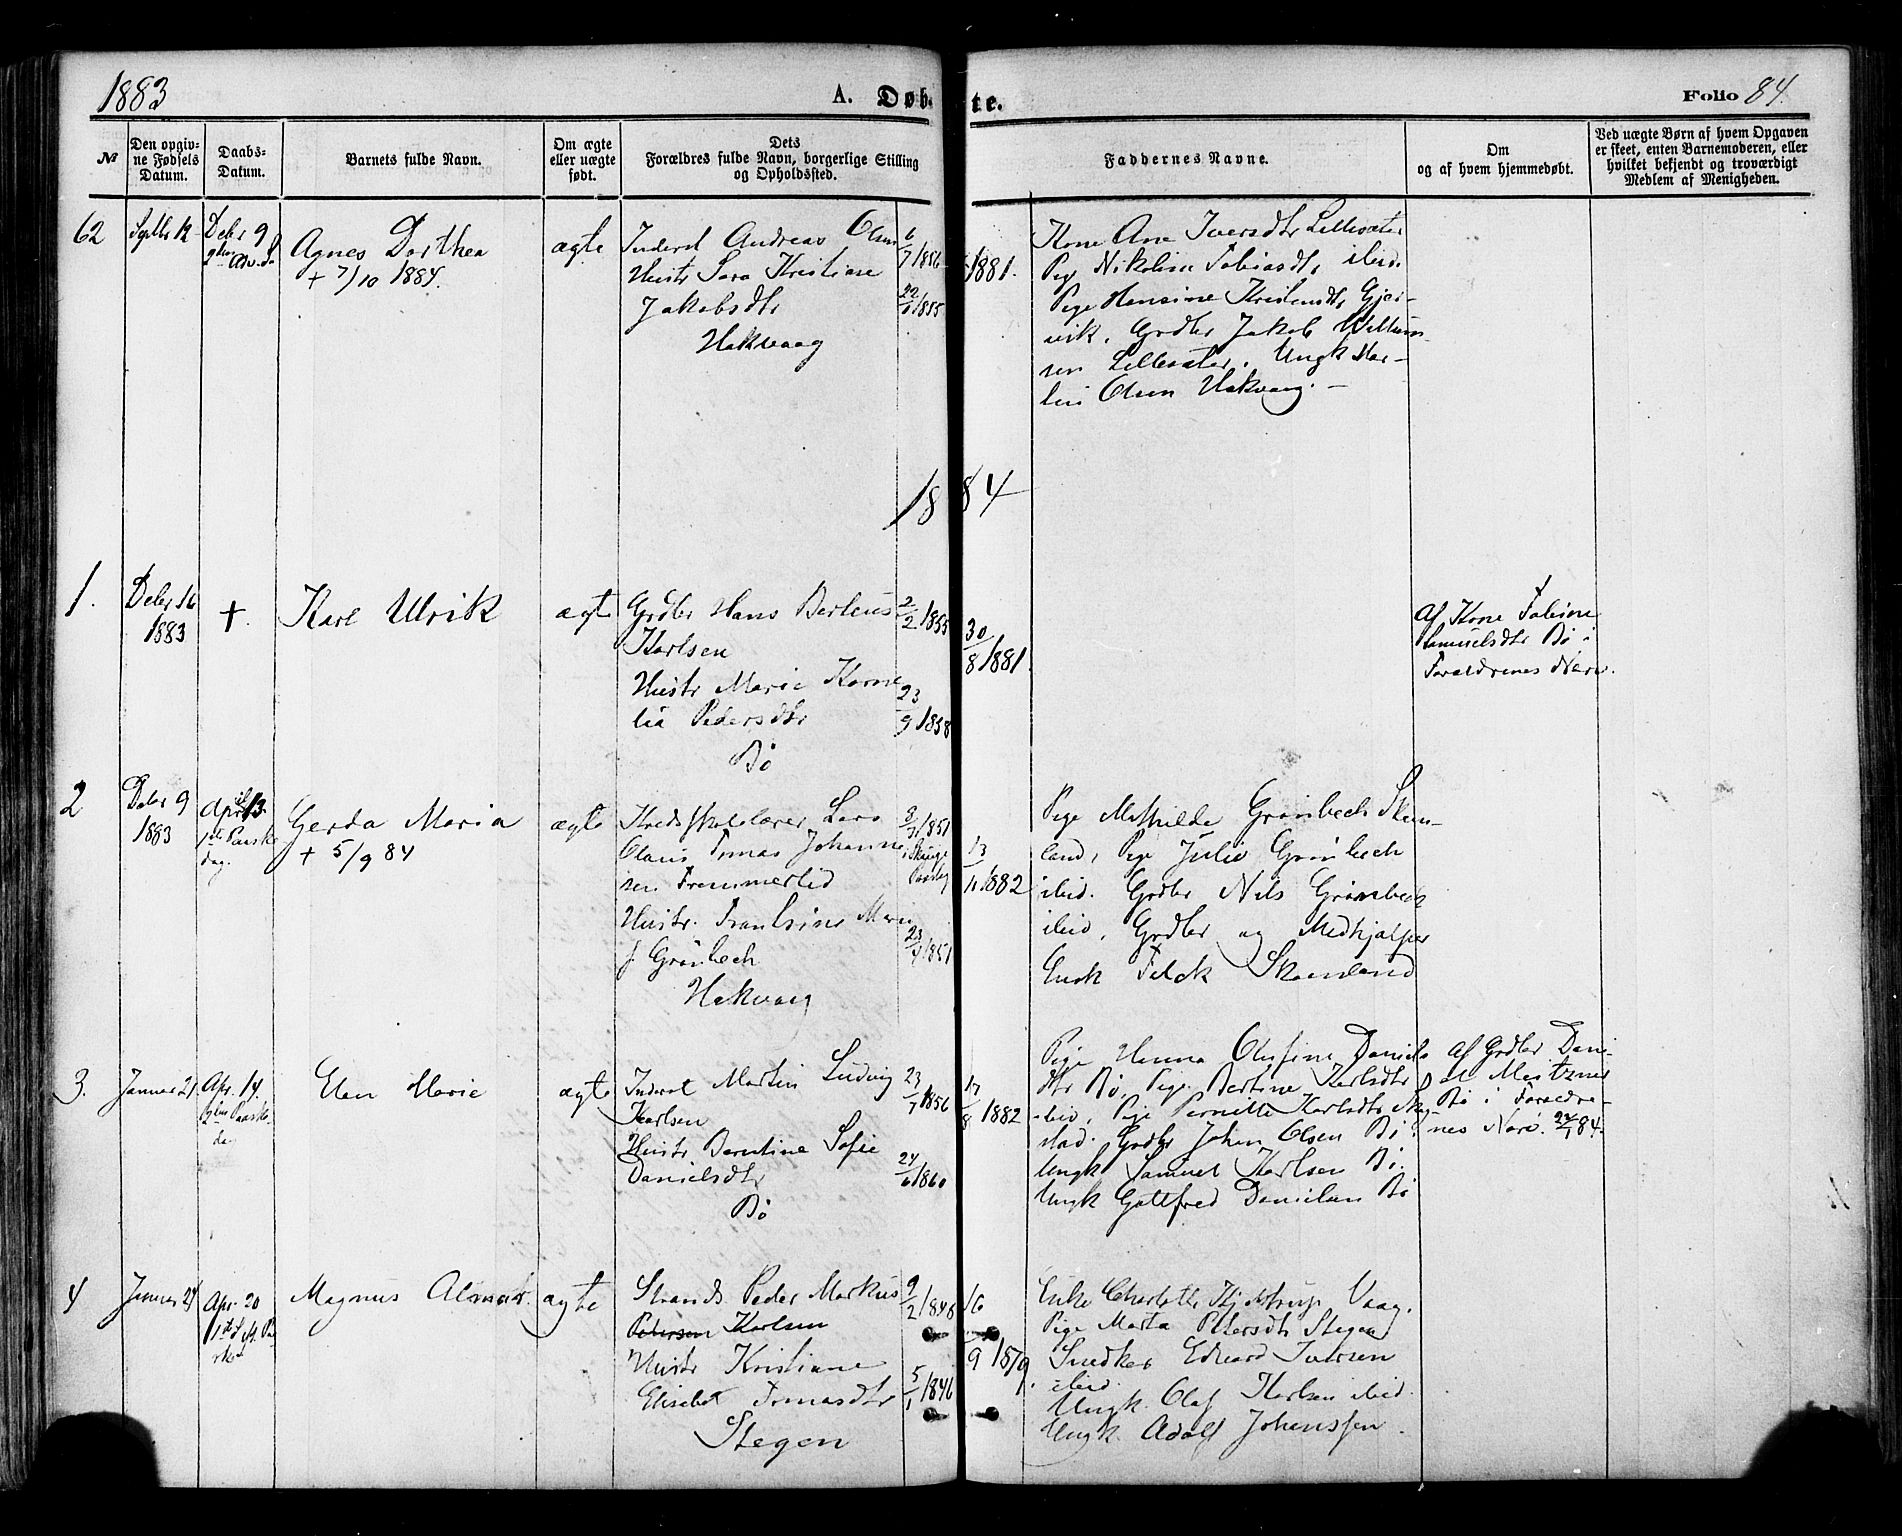 1883
A. Døb-
te.
Folio 84.
№
Den opgiv-
ne Fødsels
Datum.
Daabs-
Datum.
Barnets fulde Navn.
Om ægte
eller uægte
født.
Dets
Forældres fulde Navn, borgerlige Stilling
og Opholdssted.
Faddernes Navne.
Om
og af hvem hjemmedøbt.
Ved uægte Børn af hvem Opgaven
er skeet, enten Barnemoderen, eller
hvilket bekjendt og troværdigt
Medlem af Menigheden.
62
Septbr 12
Debr 9
Agnes Dorthea
+ 7/10 1884.
ægte
Inderst Andreas Olsen
Hustr Sara Kristiane
Jakobsdtr
Hakvaag
6/7 1856
22/ 1855
1881.
Kone Ane Iversdtr Lillesæter
Pige Nikoline Tobiasdtr ibid.
Pige Hansine Kristensdtr Gjer-
vik, Grdbr Jakob Willum-
sen Lillesæter, Ungk Mar-
tin Olsen Hakvaag. -
1884
1.
Debr 16
1883
+
Karl Ulrik
ægte
Grdbr Hans Berteus
Karlsen
Hustr Marie Korne
lia Pedersdtr
Bø
2/2 1855
23/9 1858
30/8 1881.
Af Kone Tobine
Samuelsdtr Bø i
Forældrenes Nærv.
2
Debr 9
1883
April 13
1ste Paaske
dag.
Gerda Maria
+ 5/9 84
ægte
Kredsskolelærer Lars
Olaus Tomas Johanne
sen Trommertid
Hustr. Frantsine Mari
f Grønbech
Hakvaag
3/ 1851
23/ 1851
13/11 1882
Pige Mathilde Grønbech Skan-
land, Pige Julie Grønbech
ibid. Grdbr Nils Grønbech
ibid, Grdbr og Medhjælper
Enok Falck Skanland
3.
Januar 21
Apr. 14.
2den Paaske-
dag
Elen Marie
ægte
Inderst Martin Ludvig
Karlsen
Hustr Berntine Sofie
Danielsdtr
Bø
23/7 1856
24/6 1860
17/8 1882
Pige Hanna Olufine Daniels
dtr Bø, Pige Bertine Karlsdtr
ibid, Pige Pernille Karlsdtr
stad. Grdbr Johan Olsen Bø.
Ungk Samuel Karlsen Bø.
Ungk Gottfred Danielsen Bø
Af Grdbr Dani-
el Moritzsen
Bø i Forældre-
nes Nærv. 22/1 84.
4
Januar 24
Apr. 20
1ste S. e. Pa-
ske
Magnus Almar
ægte
Strands Peder Markus
Pedersen Karlsen
Hustr Kristiane
Elisabet Tomasdtr
Stegen
9/2 1848
5/1 1846
16/9 1879.
Enke Charlotte Kjelstrup Vaag.
Pige Marta Petersdtr Stegen
Snedker Edvard Iversen
ibid.
Ungk. Olaf Karlsen ibid.
Ungk. Adolf Johanssen.